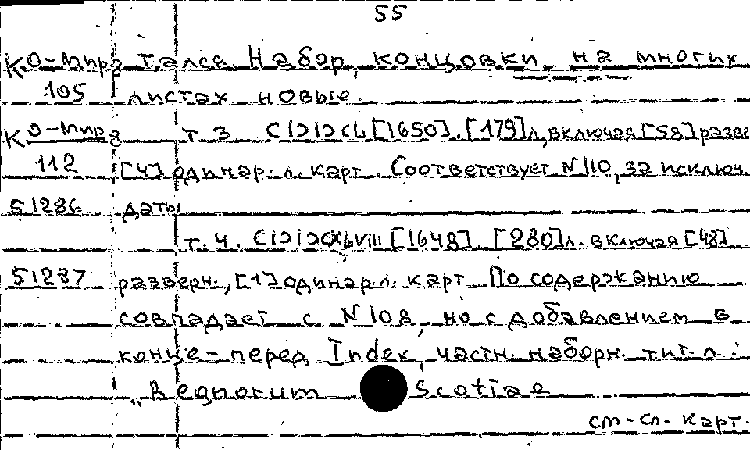 55
К.О-Мира тался. Набор, концовки, на многих
105 листах новые.
К О-Мира т. 3. CIƆIƆCL [1650]. [179] л, включая [58] разв
112 [4] одинар. л. карт. Соответствует N 110, за исключ.
51286 даты
т. 4. CIƆIƆCXLVIII [1648]. [280] л. включая [48]
51287 разверн., [1] одинар. л. карт По содержанию
совпадает с N 108, но с добавлением в
конце - перед Index, частн. наборн. тит. л.:
"Regnorum Scotiae
см. сл. карт.